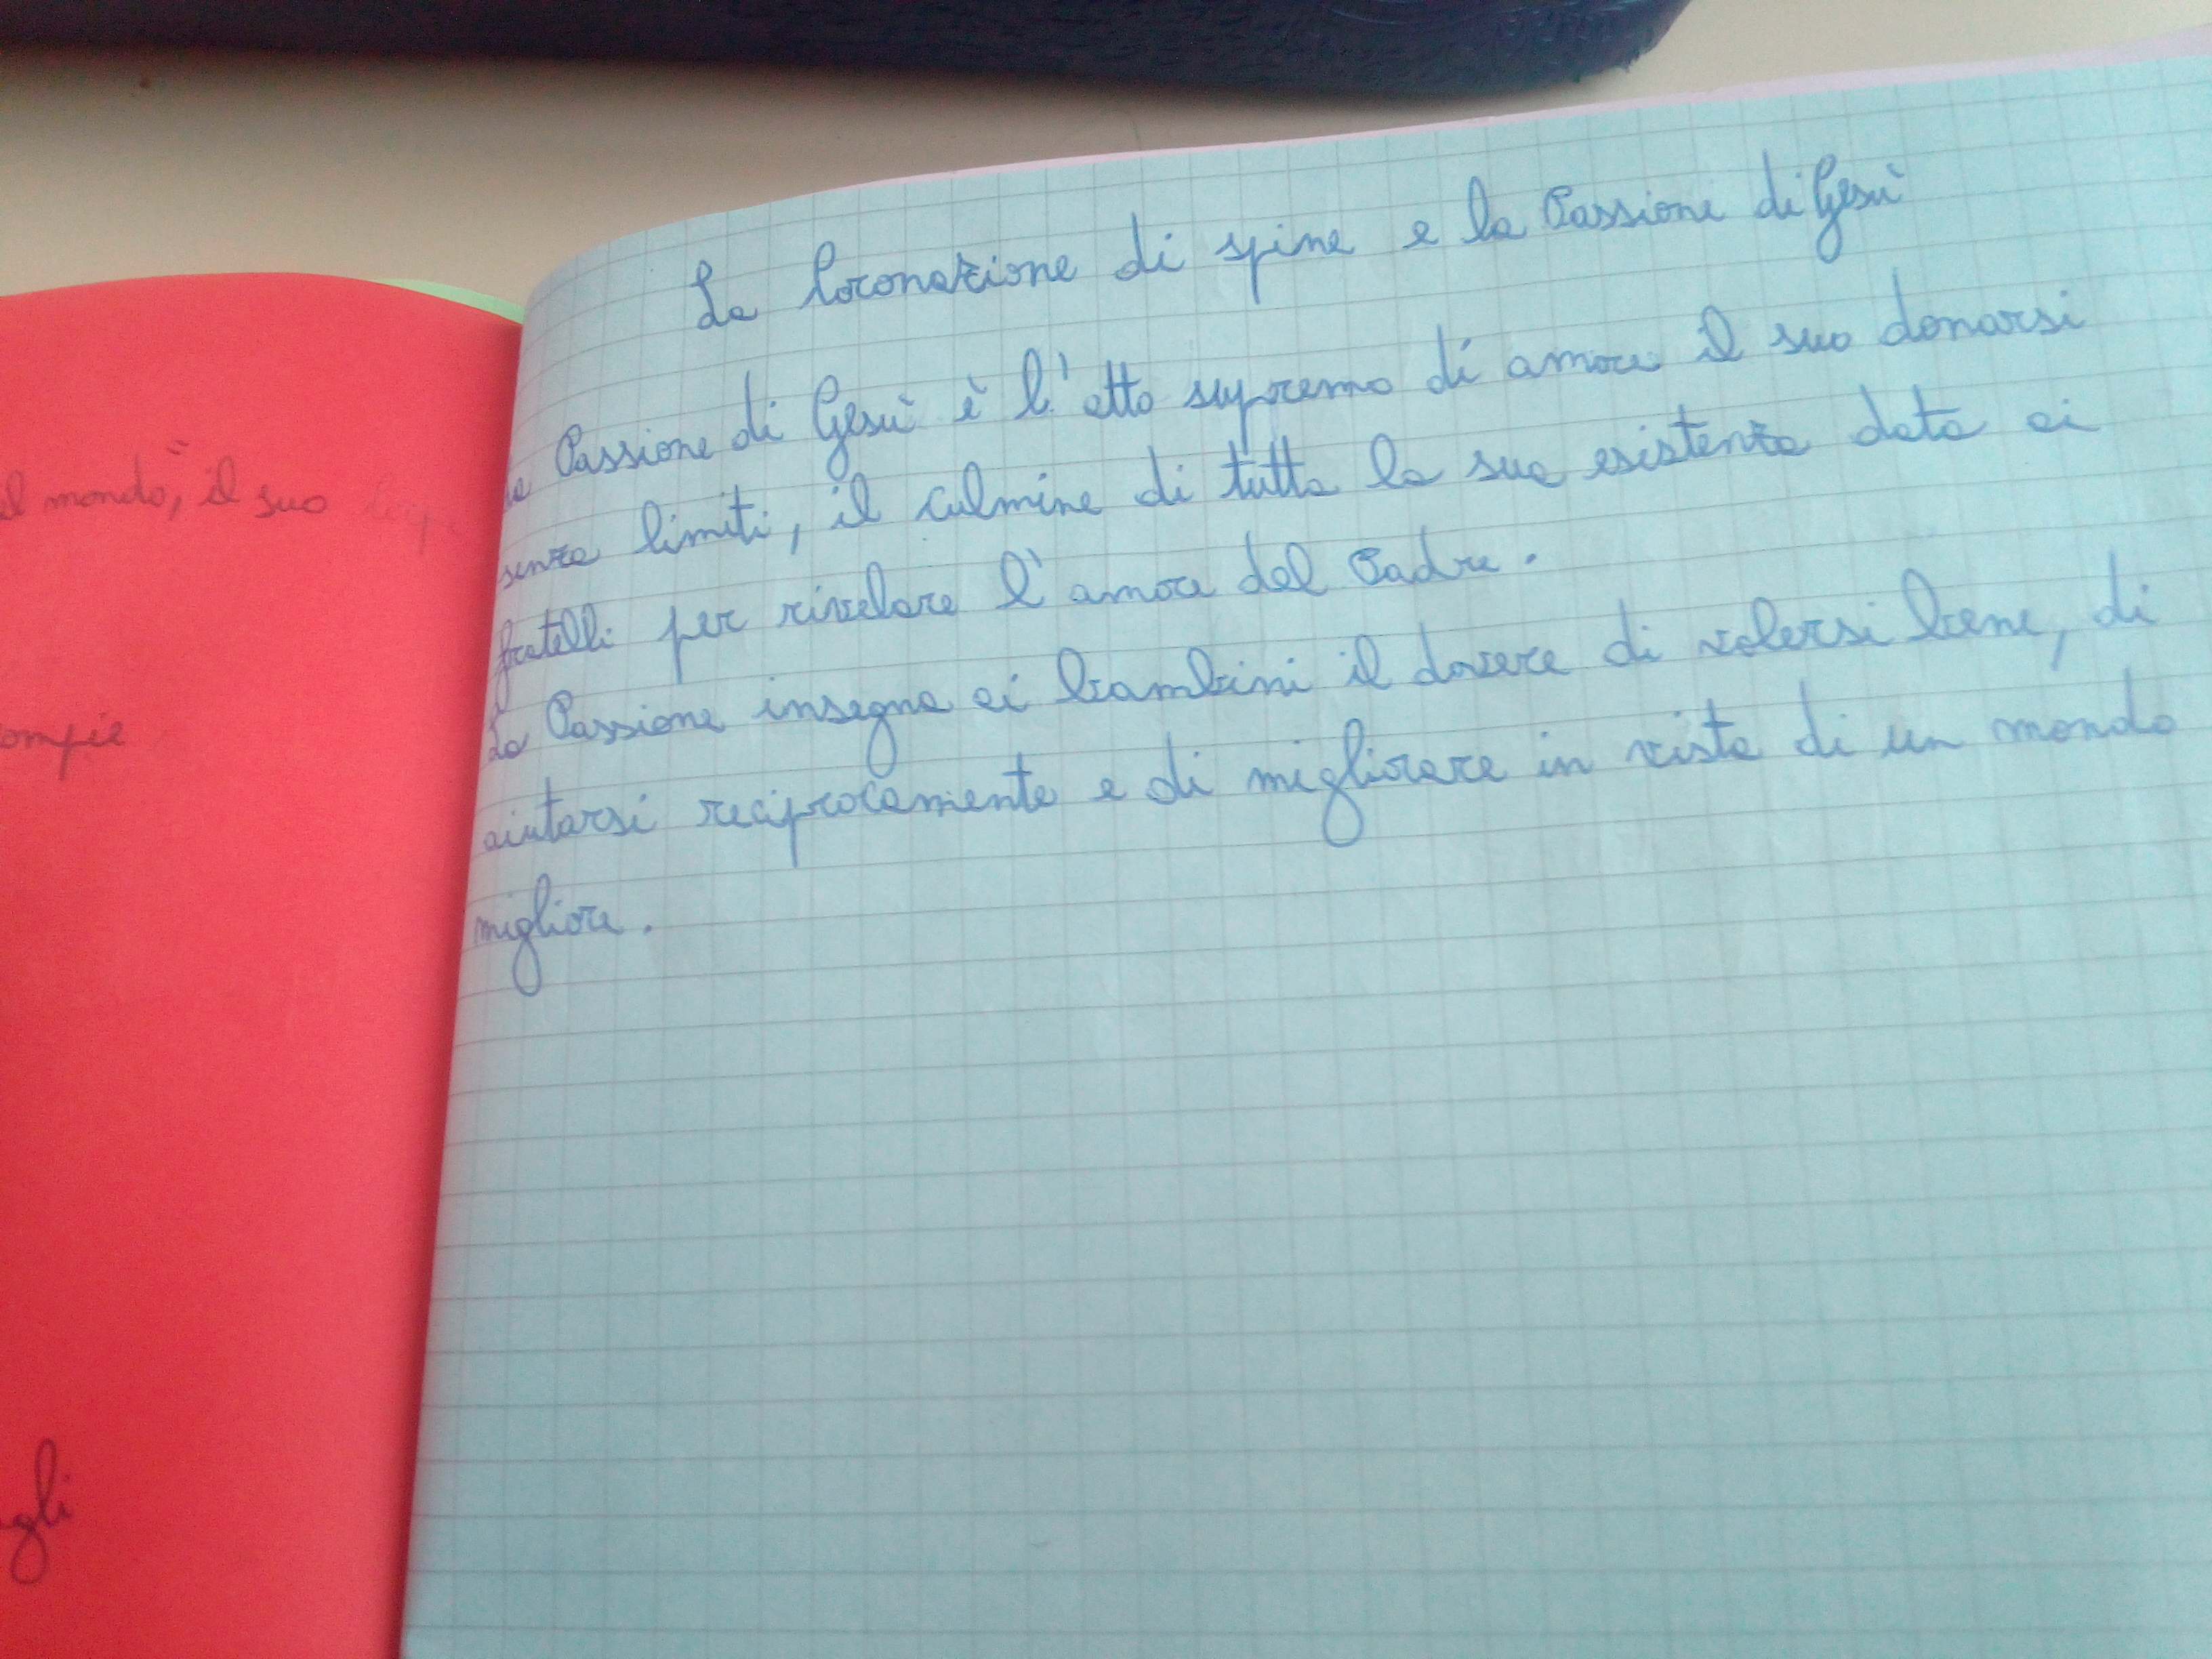 il mondo", il suo
ompie
gli
La Coronazione di spine e la Passione di Gesù
La Passione di Gesù è l'atto supremo di amore il suo donarsi
senza limiti, il culmine di tutta la sua esistenza data ai
fratelli per rivelare l'amore del Padre.
La Passione insegna ai bambini il dovere di volersi bene, di
aiutarsi reciprocamente e di migliorare in vista di un mondo
migliore.